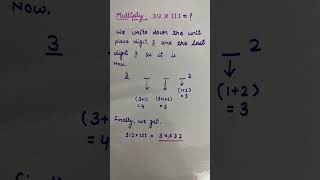 Now.
3 2
Multiply 312 × 111 = ?
We write down the unit
place digit 2 and the last
digit 3 as it is
now.
3 _ _ _ 2
(3+1) (3+1+2) (1+2)
= 4 = 6 = 3
Finally, we get,
312×111 = 34,632